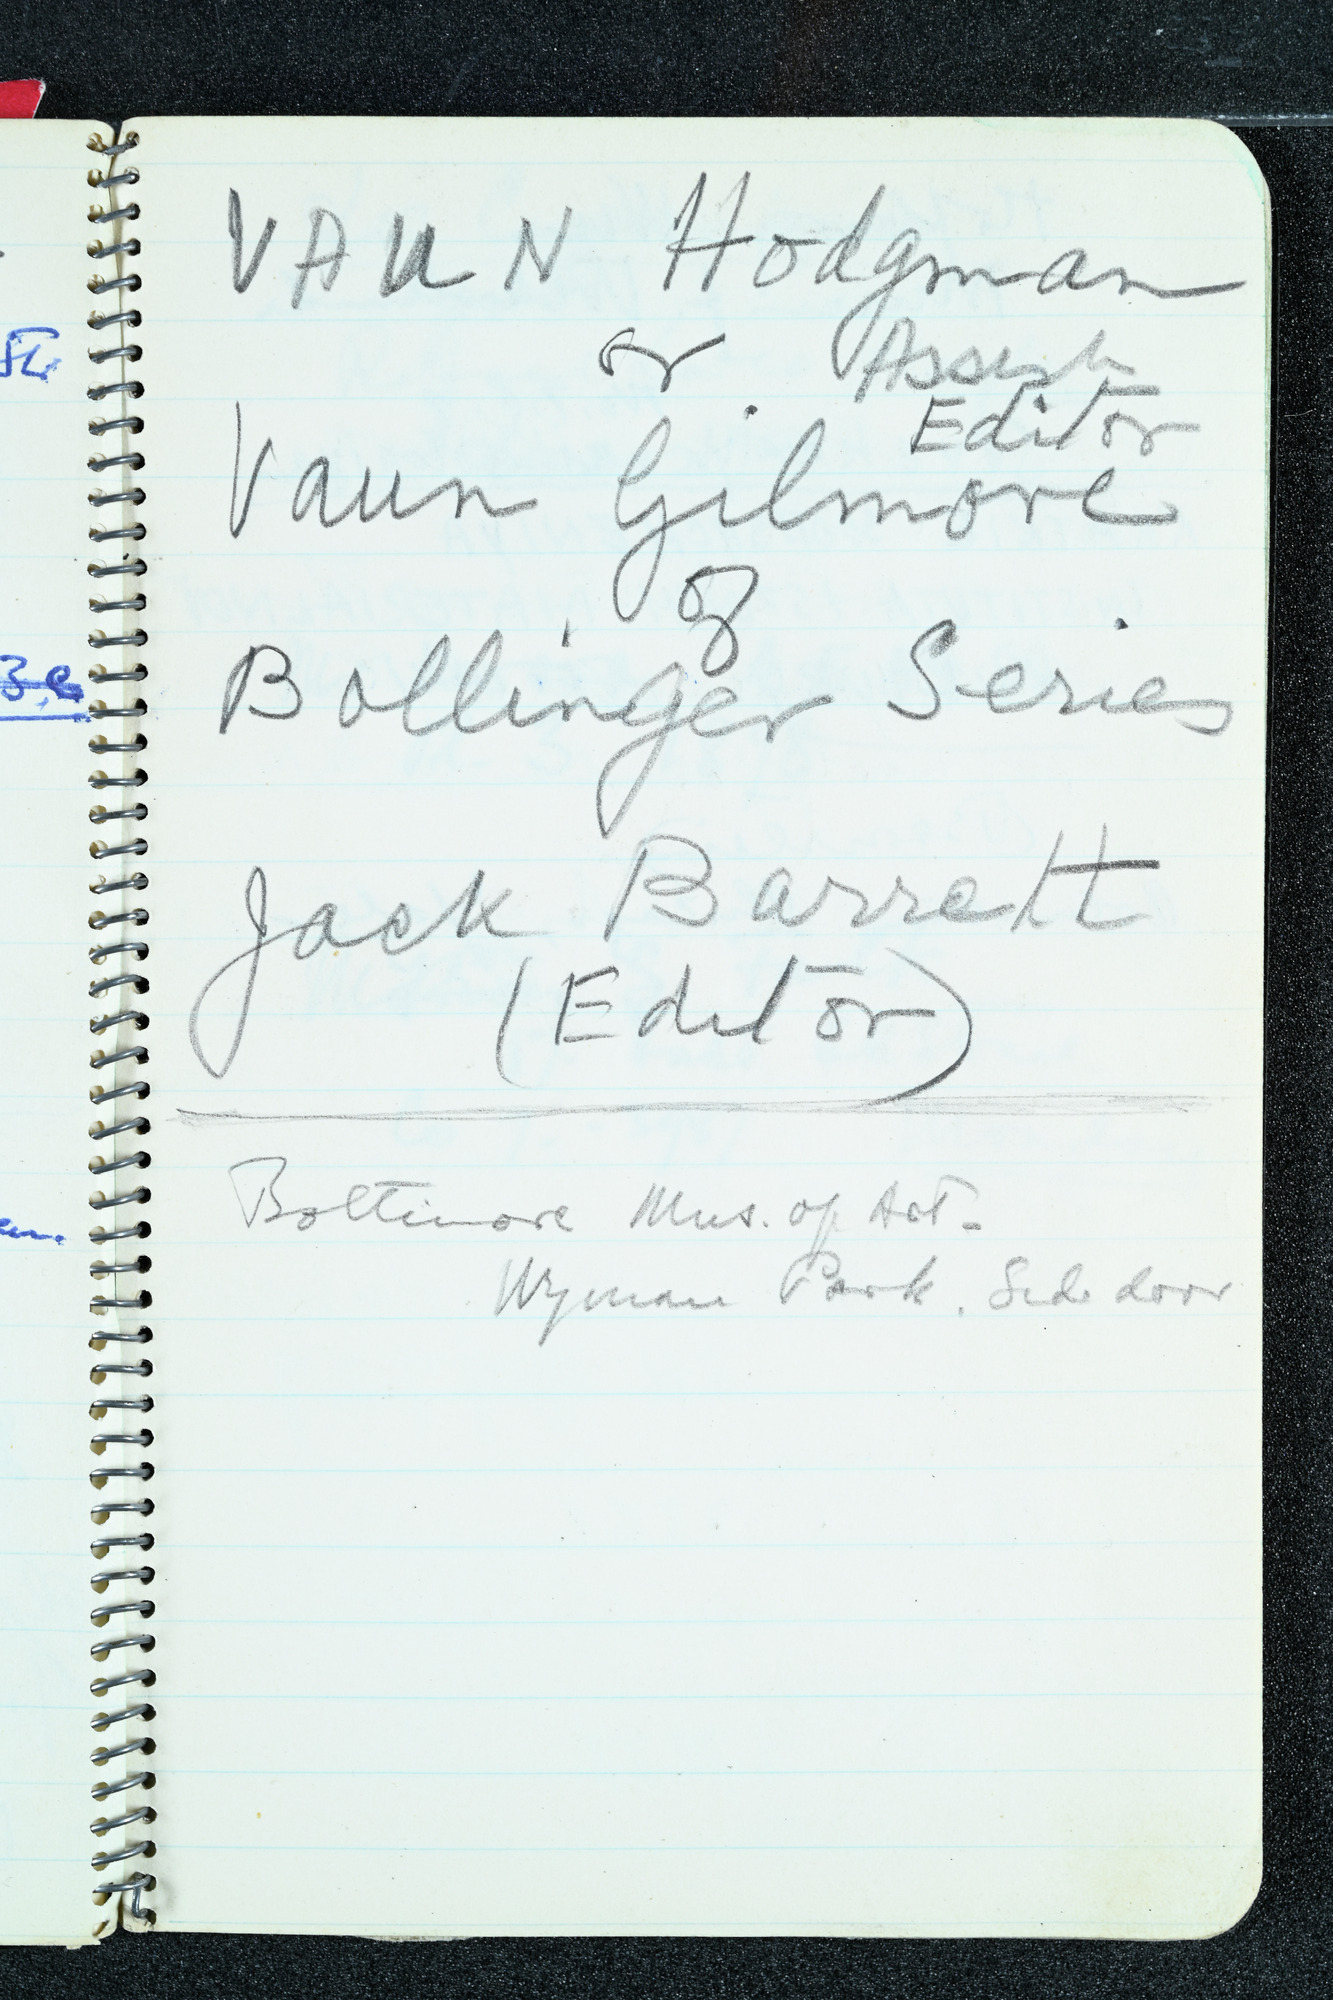 VAUN Hodgman
or Assist
Editor
Vaun Gilmore
of
Bollinger Series
Jack Barrett
(Editor)
Boltimore Mus. of Art.
Wyman Park, Side door